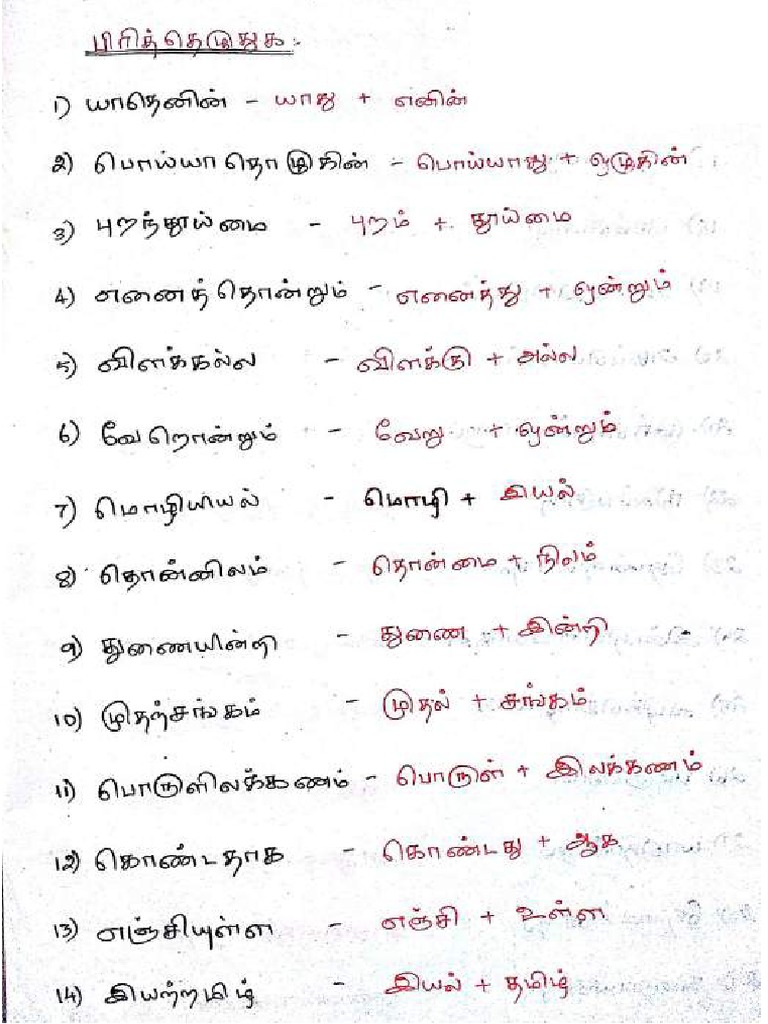 பிரித்தெழுதுக :-
1) யாதெனின் - யாது + எனின்
2) பொய்யாதொழுகின் - பொய்யாது + ஒழுகின்
3) புறந்தூய்மை - புறம் + தூய்மை
4) எனைத்தொன்றும் - எனைத்து + ஒன்றும்
5) விளக்கல்ல - விளக்கு + அல்ல
6) வேறொன்றும் - வேறு + ஒன்றும்
7) மொழியியல் - மொழி + இயல்
8) தொன்னிலம் - தொன்மை + நிலம்
9) துணையின்றி - துணை + இன்றி
10) முதற்சங்கம் - முதல் + சங்கம்
11) பொருளிலக்கணம் - பொருள் + இலக்கணம்
12) கொண்டதாக - கொண்டது + ஆக
13) எஞ்சியுள்ள - எஞ்சி + உள்ள
14) இயற்றமிழ் - இயல் + தமிழ்